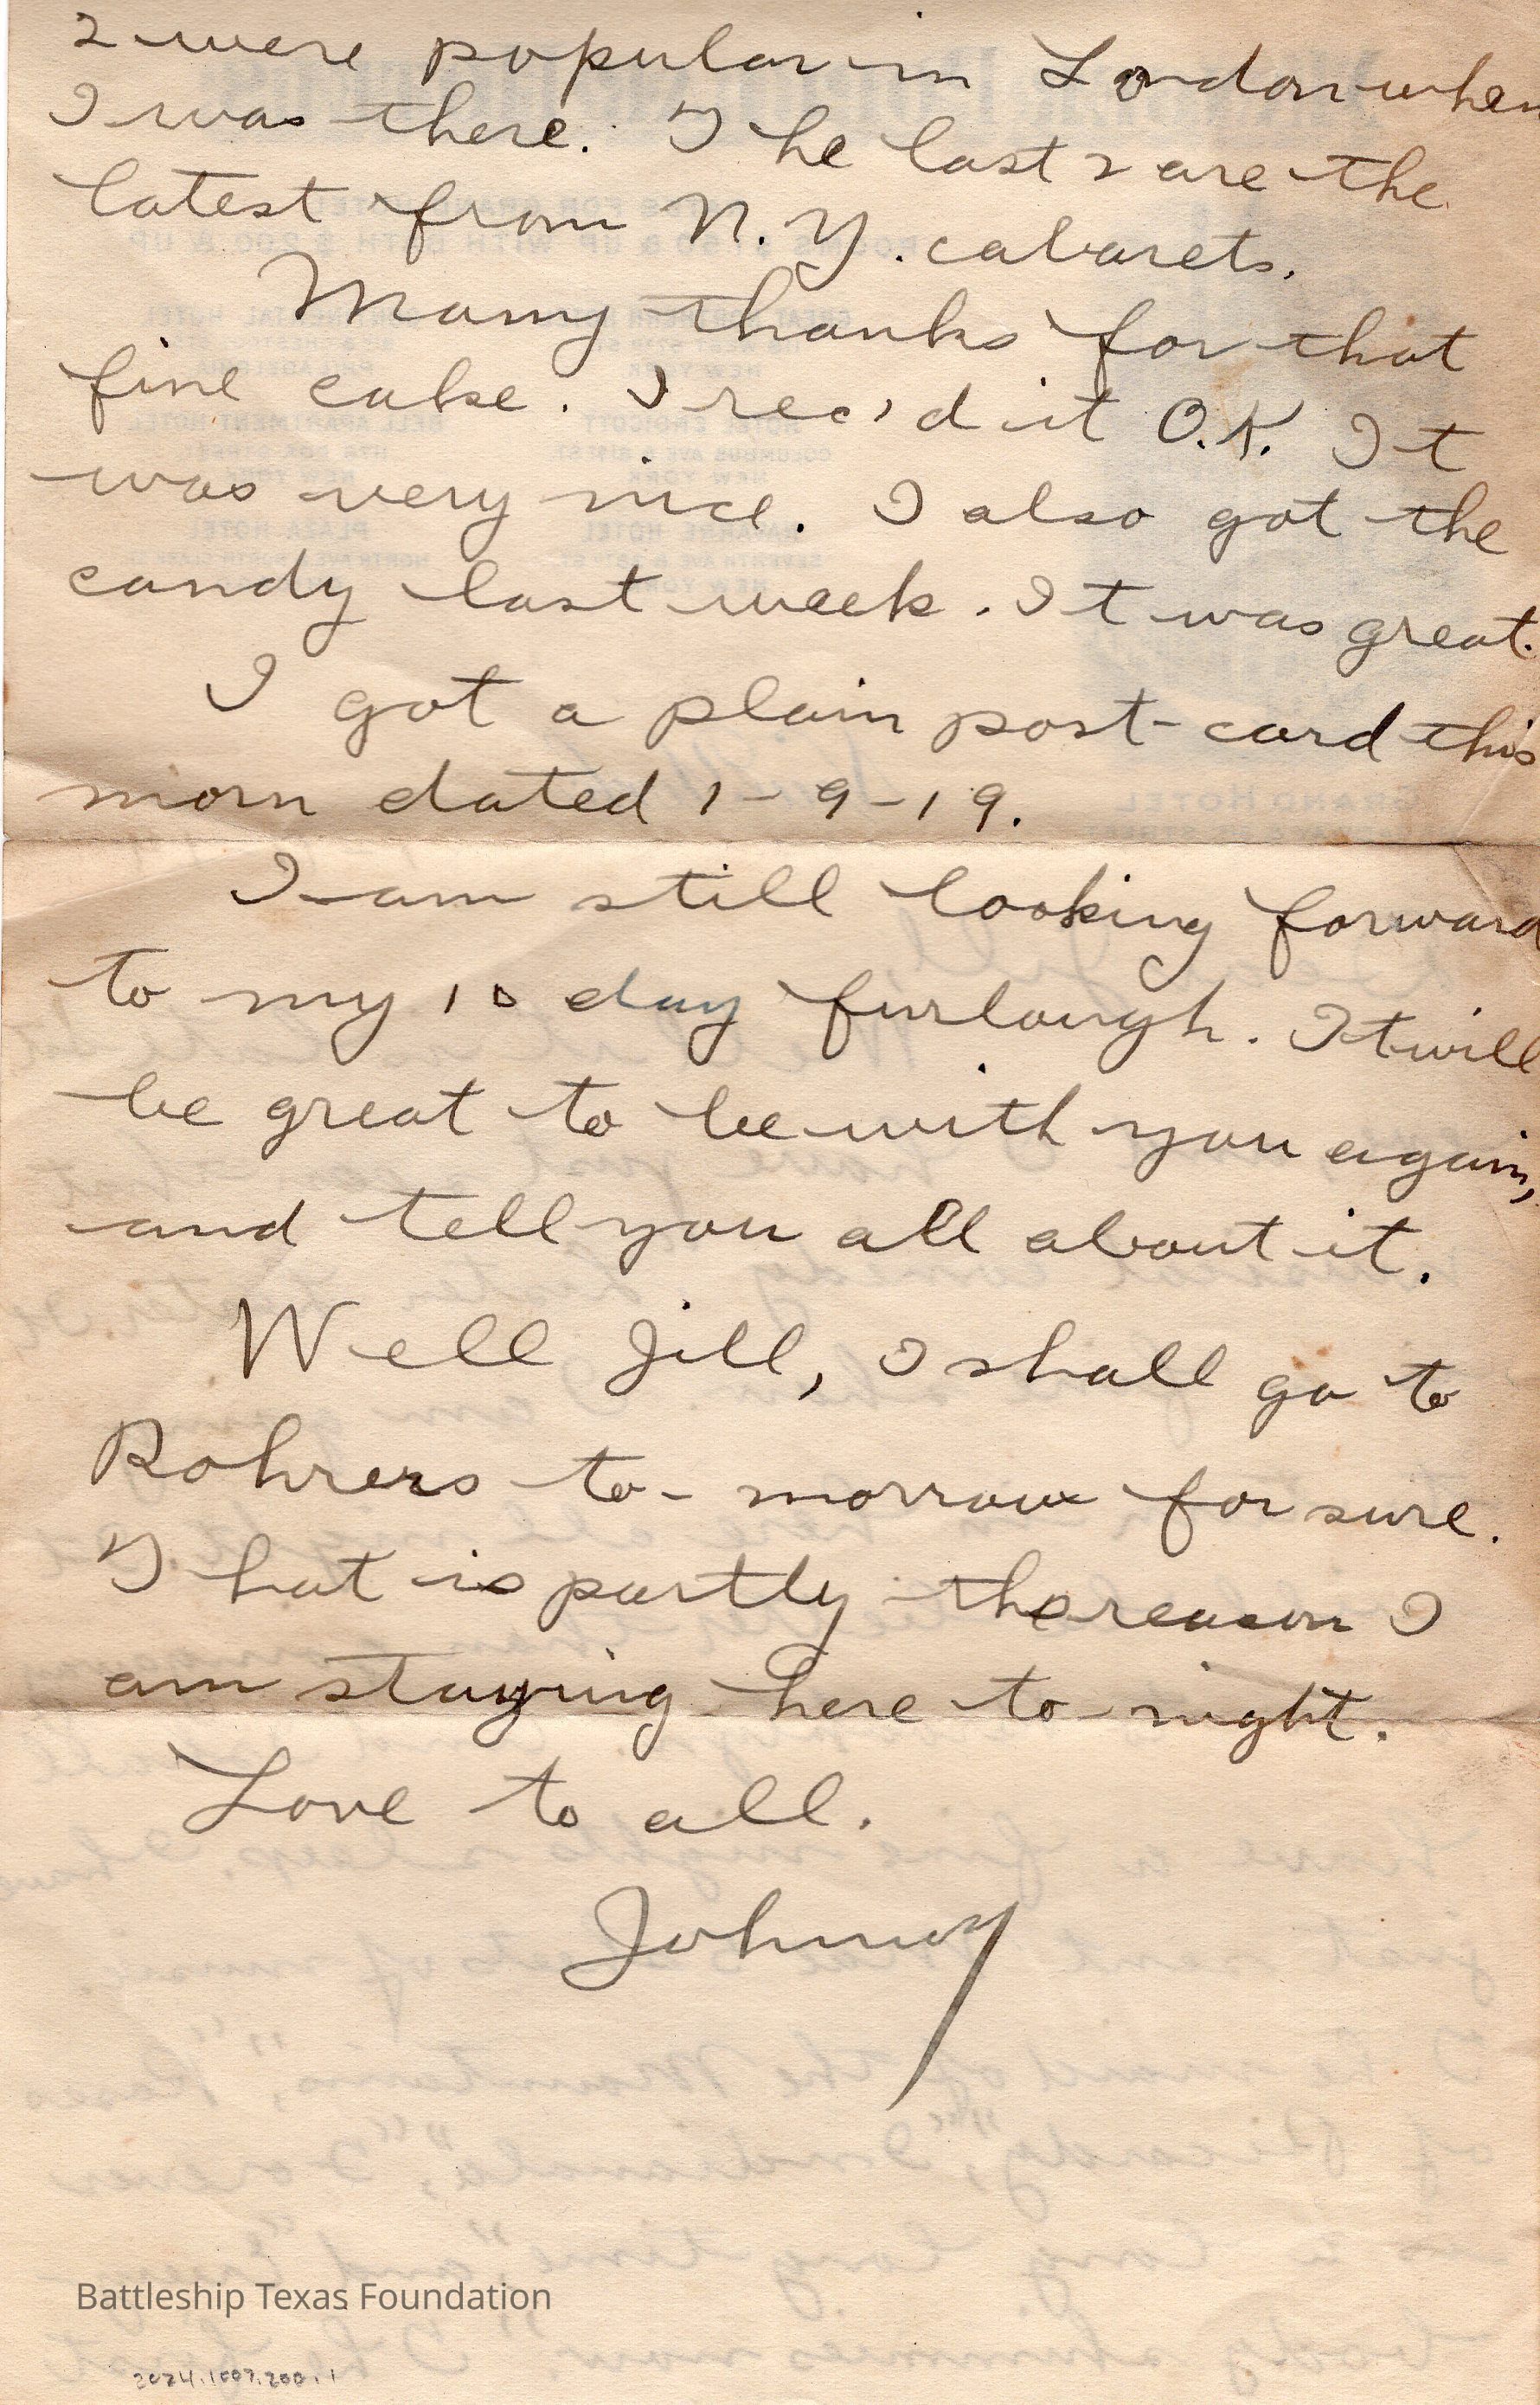 2 were popular in London when
I was there. The last 2 are the
latest from N.Y. cabarets.
Many thanks for that
fine cake. I rec'd it O.K. It
was very nice. I also got the
candy last week. It was great.
I got a plain post-card this
morn dated 1-9-19.
I am still looking forward
to my 10 day furlough. It will
be great to be with you again,
and tell you all about it.
Well Jill, I shall go to
Rohrers to-morrow for sure.
That is partly the reason I
am staying here to-night.
Love to all.
Johnny
Battleship Texas Foundation
2024.1007.200.1